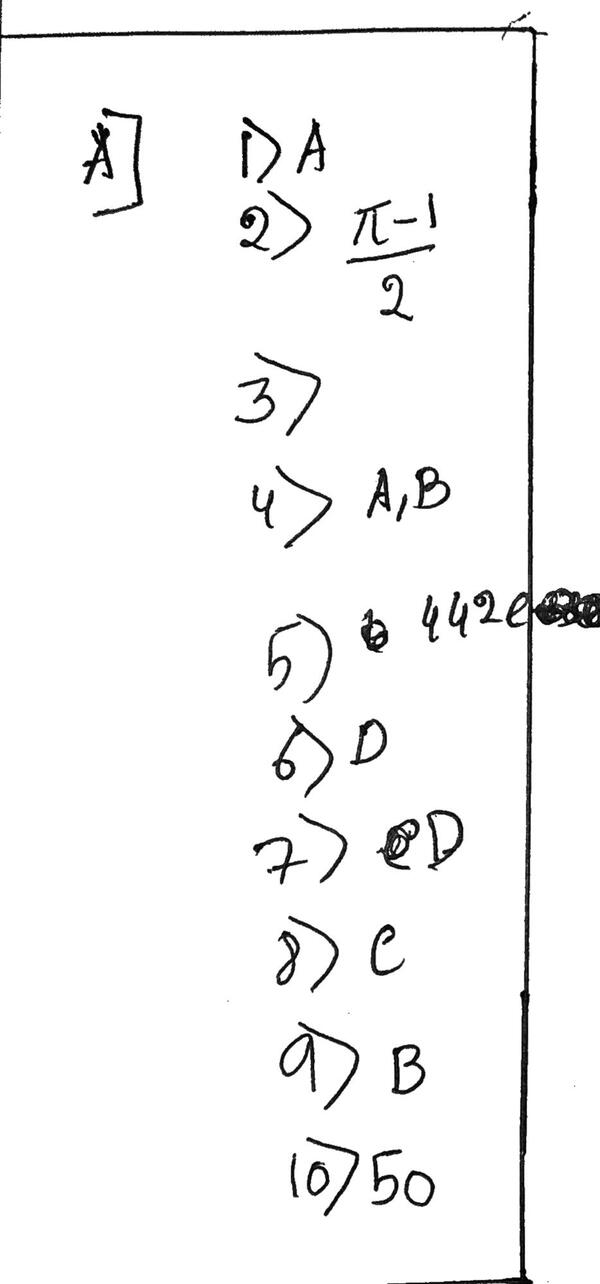 A] 1> A
2> π-1/2
3>
4> A,B
5) 442e
6> D
7> D
8> C
9> B
10> 50